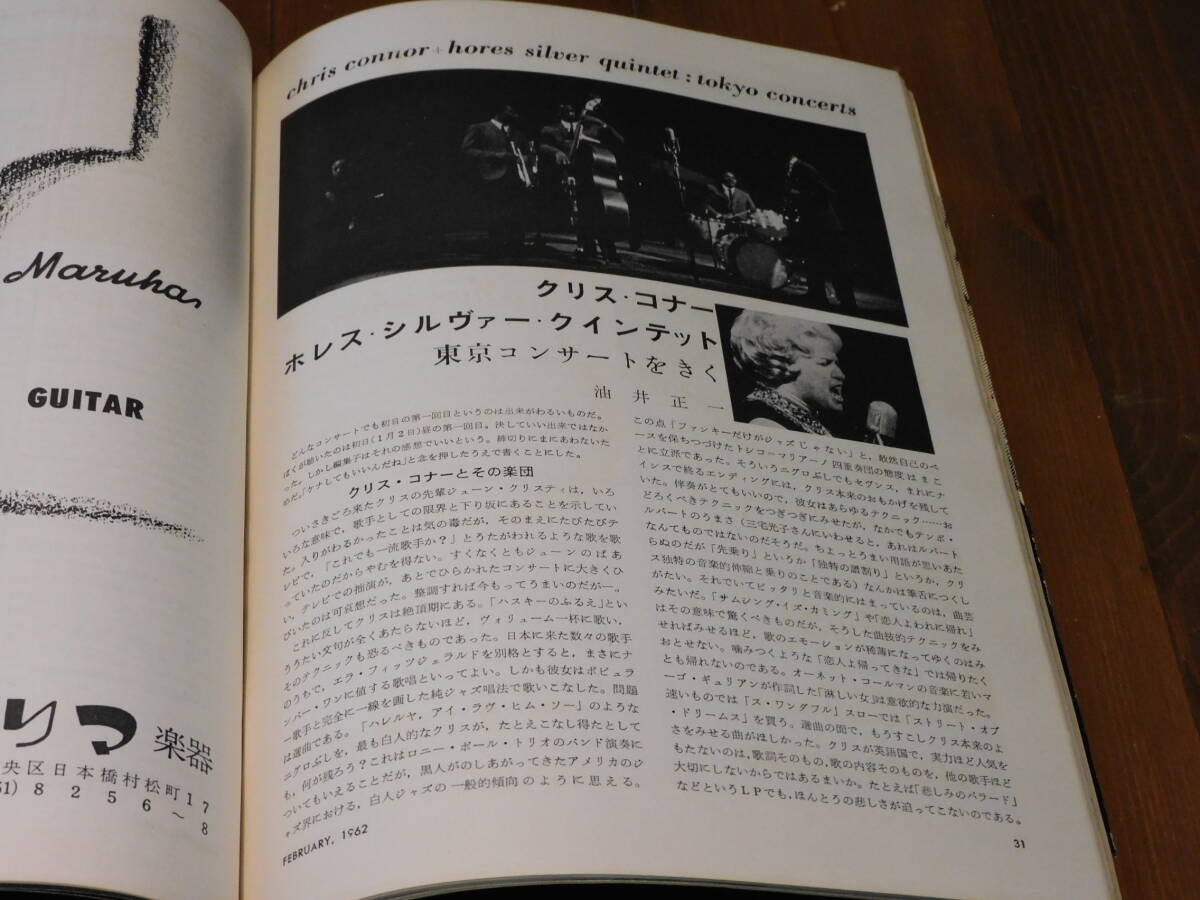 Maruha
GUITAR
りマ楽器
央区日本橋村松町17
61) 8256~8
chris connor+hores silver quintet:tokyo concerts
クリス・コナー
ホレス・シルヴァー・クインテット
東京コンサートをきく
油井正一
どんなコンサートでも初日の第一回目というのは出来がわるいものだ。
ぼくが聴いたのは初日(1月2日)昼の第一回目。決していい出来ではなか
った。しかし編集子はそれの感想でいいという。締切りにまにあわないた
めだ。「ケナしてもいいんだね」と念を押したうえで書くことにした。
クリス・コナーとその楽団
ついさきごろ来たクリスの先輩ジューン・クリスティは、いろ
いろな意味で、歌手としての限界と下り坂にあることを示してい
た。入りがわるかったことは気の毒だが、そのまえにたびたびテ
レビで、「これでも一流歌手か?」とうたがわれるような歌を歌
っていたのだからやむを得ない。すくなくともジューンのばあ
い、テレビでの拙演が、あとでひらかれたコンサートに大きくひ
びいたのは可哀想だった。整調すれば今もってうまいのだが—。
これに反してクリスは絶頂期にある。「ハスキーのふるえ」とい
ううたい文句が全くあたらないほど、ヴォリューム一杯に歌い、
そのテクニックも恐るべきものであった。日本に来た数々の歌手
のうちで、エラ・フィッツジェラルドを別格とすると、まさにナ
ンバー・ワンに値する歌唱といってよい。しかも彼女はポピュラ
ー歌手と完全に一線を画した純ジャズ唱法で歌いこなした。問題
は選曲である。「ハレルヤ、アイ・ラヴ・ヒム・ソー」のような
ニグロぶしを、最も白人的なクリスが、たとえこなし得たとして
も、何が残ろう?これはロニー・ボール・トリオのバンド演奏に
ついてもいえることだが、黒人がのしあがってきたアメリカのジ
ャズ界における、白人ジャズの一般的傾向のように思える。
この点「ファンキーだけがジャズじゃない」と、敢然自己のペ
ースを保ちつづけたトシコ=マリアーノ四重奏団の態度はまこ
とに立派であった。そういうニグロぶしでもセヴンス、まれにナ
インスで終るエンディングには、クリス本来のおもかげを残して
いた。伴奏がとてもいいので、彼女はあらゆるテクニック……お
どろくべきテクニックをつぎつぎにみせたが、なかでもテンポ・
ルバートのうまさ(三宅光子さんにいわせると、あれはルバート
なんてものではないのだそうだ。ちょっとうまい用語が思いあた
らぬのだが「先乗り」というか「独特の譜割り」というか、クリ
ス独特の音楽的伸縮と乗りのことである)なんかは筆舌につくし
がたい。それでいてピッタリと音楽的にはまっているのは、曲芸
みたいだ。「サムシング・イズ・カミング」や「恋人よわれに帰れ」
はその意味で驚くべきものだが、そうした曲技的テクニックをみ
せればみせるほど、歌のエモーションが稀薄になってゆくのはみ
おとせない。噛みつくような「恋人よ帰ってきな」では帰りたく
とも帰れないのである。オーネット・コールマンの音楽に若いマ
ーゴ・ギュリアンが作詞した「淋しい女」は意欲的な力演だった。
速いものでは「ス・ワンダフル」スローでは「ストリート・オブ
・ドリームス」を買う。選曲の面で、もうすこしクリス本来のよ
さをみせる曲がほしかった。クリスが英語国で、実力ほど人気を
もたないのは、歌詞そのもの、歌の内容そのものを、他の歌手ほど
大切にしないからではあるまいか。たとえば「悲しみのバラード」
などというLPでも、ほんとうの悲しさが迫ってこないのである。
FEBRUARY, 1962
31